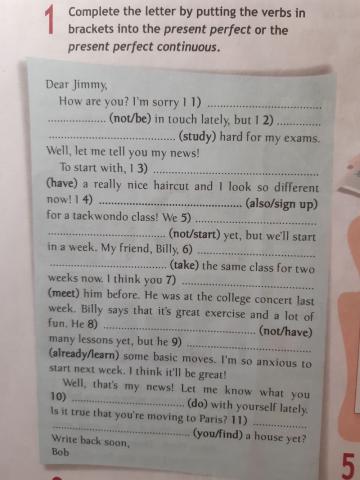 1 Complete the letter by putting the verbs in
brackets into the present perfect or the
present perfect continuous.
Dear Jimmy,
How are you? I'm sorry I 1) ..............................
.................. (not/be) in touch lately, but I 2) ............
........................................ (study) hard for my exams.
Well, let me tell you my news!
To start with, I 3) ........................................
(have) a really nice haircut and I look so different
now! I 4) ............................................ (also/sign up)
for a taekwondo class! We 5) ..............................
..................................... (not/start) yet, but we'll start
in a week. My friend, Billy, 6) ..............................
..................................... (take) the same class for two
weeks now. I think you 7) ..............................
(meet) him before. He was at the college concert last
week. Billy says that it's great exercise and a lot of
fun. He 8) ............................................ (not/have)
many lessons yet, but he 9) ..............................
(already/learn) some basic moves. I'm so anxious to
start next week. I think it'll be great!
Well, that's my news! Let me know what you
10) .................................... (do) with yourself lately.
Is it true that you're moving to Paris? 11) ..................
............................................ (you/find) a house yet?
Write back soon,
Bob
5